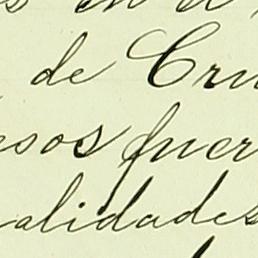 de Cru
esos fuer
alidades